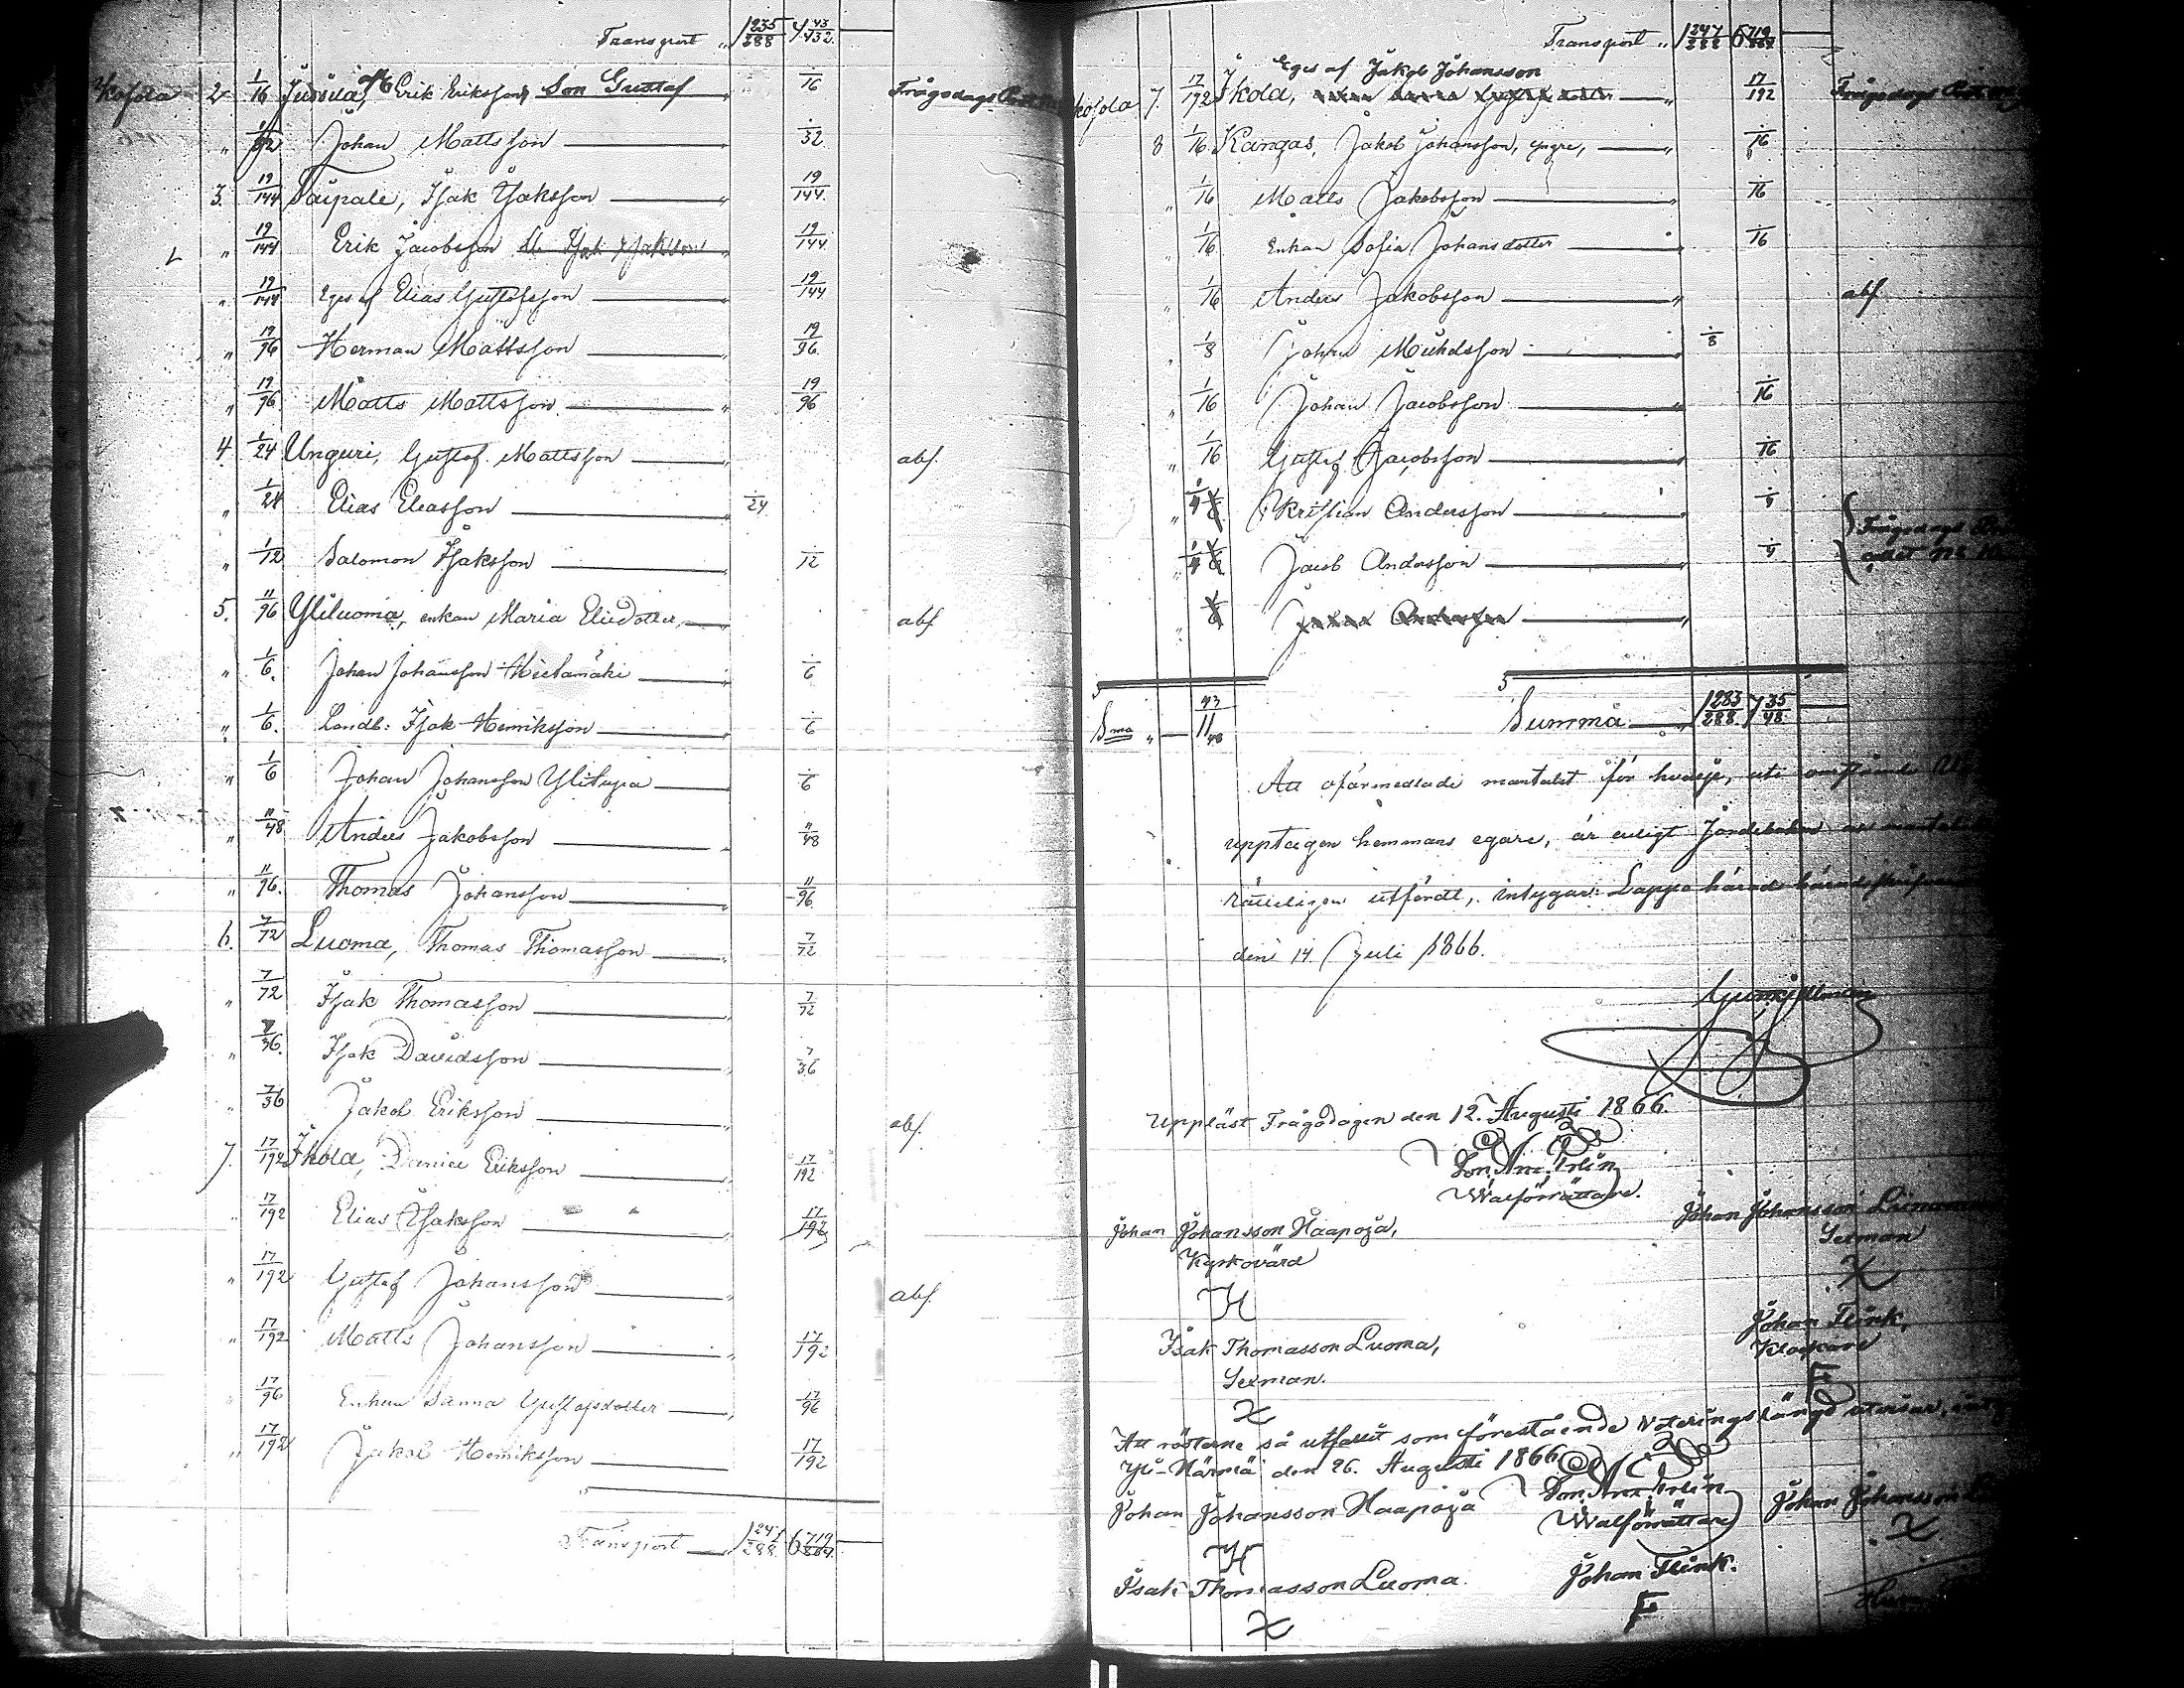 Transport „ 1 235/288 4 43/432
Kosola 2. 1/16 Jussila, Erik Eriksson Son Gustaf 1/16 Frågodags
„ 1/32 Johan Mattsson „ 1/32
3. 19/144 Taipale, Isak Isaksson „ 19/144
„ 19/144 Erik Jacobsson „ 19/144
„ 19/144 Eges af Elias Gustafsson „ 19/144
„ 19/96 Herman Mattsson „ 19/96
„ 19/96 Matts Mattsson „ 19/96
4. 1/24 Unguri, Gustaf Mattsson „ abs.
„ 1/24 Elias Eleasson „ 1/24
„ 1/12 Salomon Isaksson „ 1/12
5. 11/96 Yliluoma, enkan Maria Eliedotter „ abs
„ 1/6. Johan Johansson Hietamäki „ 1/6
„ 1/6. Landb: Isak Henriksson „ 1/6
„ 1/6 Johan Johansson Ylitupa „ 1/6
„ 11/48 Anders Jakobsson „ 11/48
„ 11/96. Thomas Johansson „ 11/96
6. 7/72 Luoma, Thomas Thomasson „ 7/72
„ 7/72 Isak Thomasson „ 7/72
„ 7/36. Isak Davidsson „ 7/36
„ 7/36 Jakob Eriksson „ abs.
7. 17/192 Ikola, Daniel Eriksson „ 17/192
„ 17/192 Elias Isaksson „ 17/192
„ 17/192 Gustaf Johansson „ abs.
„ 17/192 Matts Johansson „ 17/192
„ 17/96 Enkan Sanna Gustafsdotter „ 17/96
„ 17/192 Jakob Henriksson 17/192
Transport 1 247/288 6 719/864
Transport „ 1 247/288 6 719/864
Eges af Jakob Johansson
Kosola 7. 17/192 Ikola, „ 17/192 Frågodags
8 1/16 Kangas, Jakob Johansson, yngre, „ 1/16
„ 1/16 Matts Jakobsson „ 1/16
„ 1/16 Enkan Sofia Johansdotter „ 1/16
„ 1/16 Anders Jakobsson „ abs
„ 1/8 Johan „ 1/8
„ 1/16 Johan Jacobsson „ 1/16
„ 1/16 Gustaf Jacobsson „ 1/16
„ 1/4 Kristian Andersson „ 1/4 Frågodags
„ 1/4 Jacob Andersson „ 1/4
„ Andersson „
Sma „ 11 43/48 Summa 1 283/288 7 35/48
Att oförmedlade mantalet för hvarje, uti omstående
upptagen hemmans egare, är enligt Jordeboken
rätteligen utfördt, intygar: Lappo härads
den 14 Juli 1866.
Uppläst Frågodagen den 12. Augusti 1866.
Walförrättare.
Johan Johansson Haapoja,
Kyrkovärd
H
Johan Johansson
Sexman
X
Isak Thomasson Luoma,
Sexman.
X
Johan Flink,
Klockare
F
Att rösterne så utfallit som förestående Voteringslängd utvisar,
Yli-Härmä den 26. Augusti 1866
Walförrättare
Johan Johansson Haapoja
H
Johan Johansson
X
Isak Thomasson Luoma.
X
Johan Flink.
F